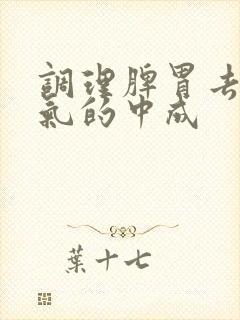 調理脾胃去
氣的中成
葉十七